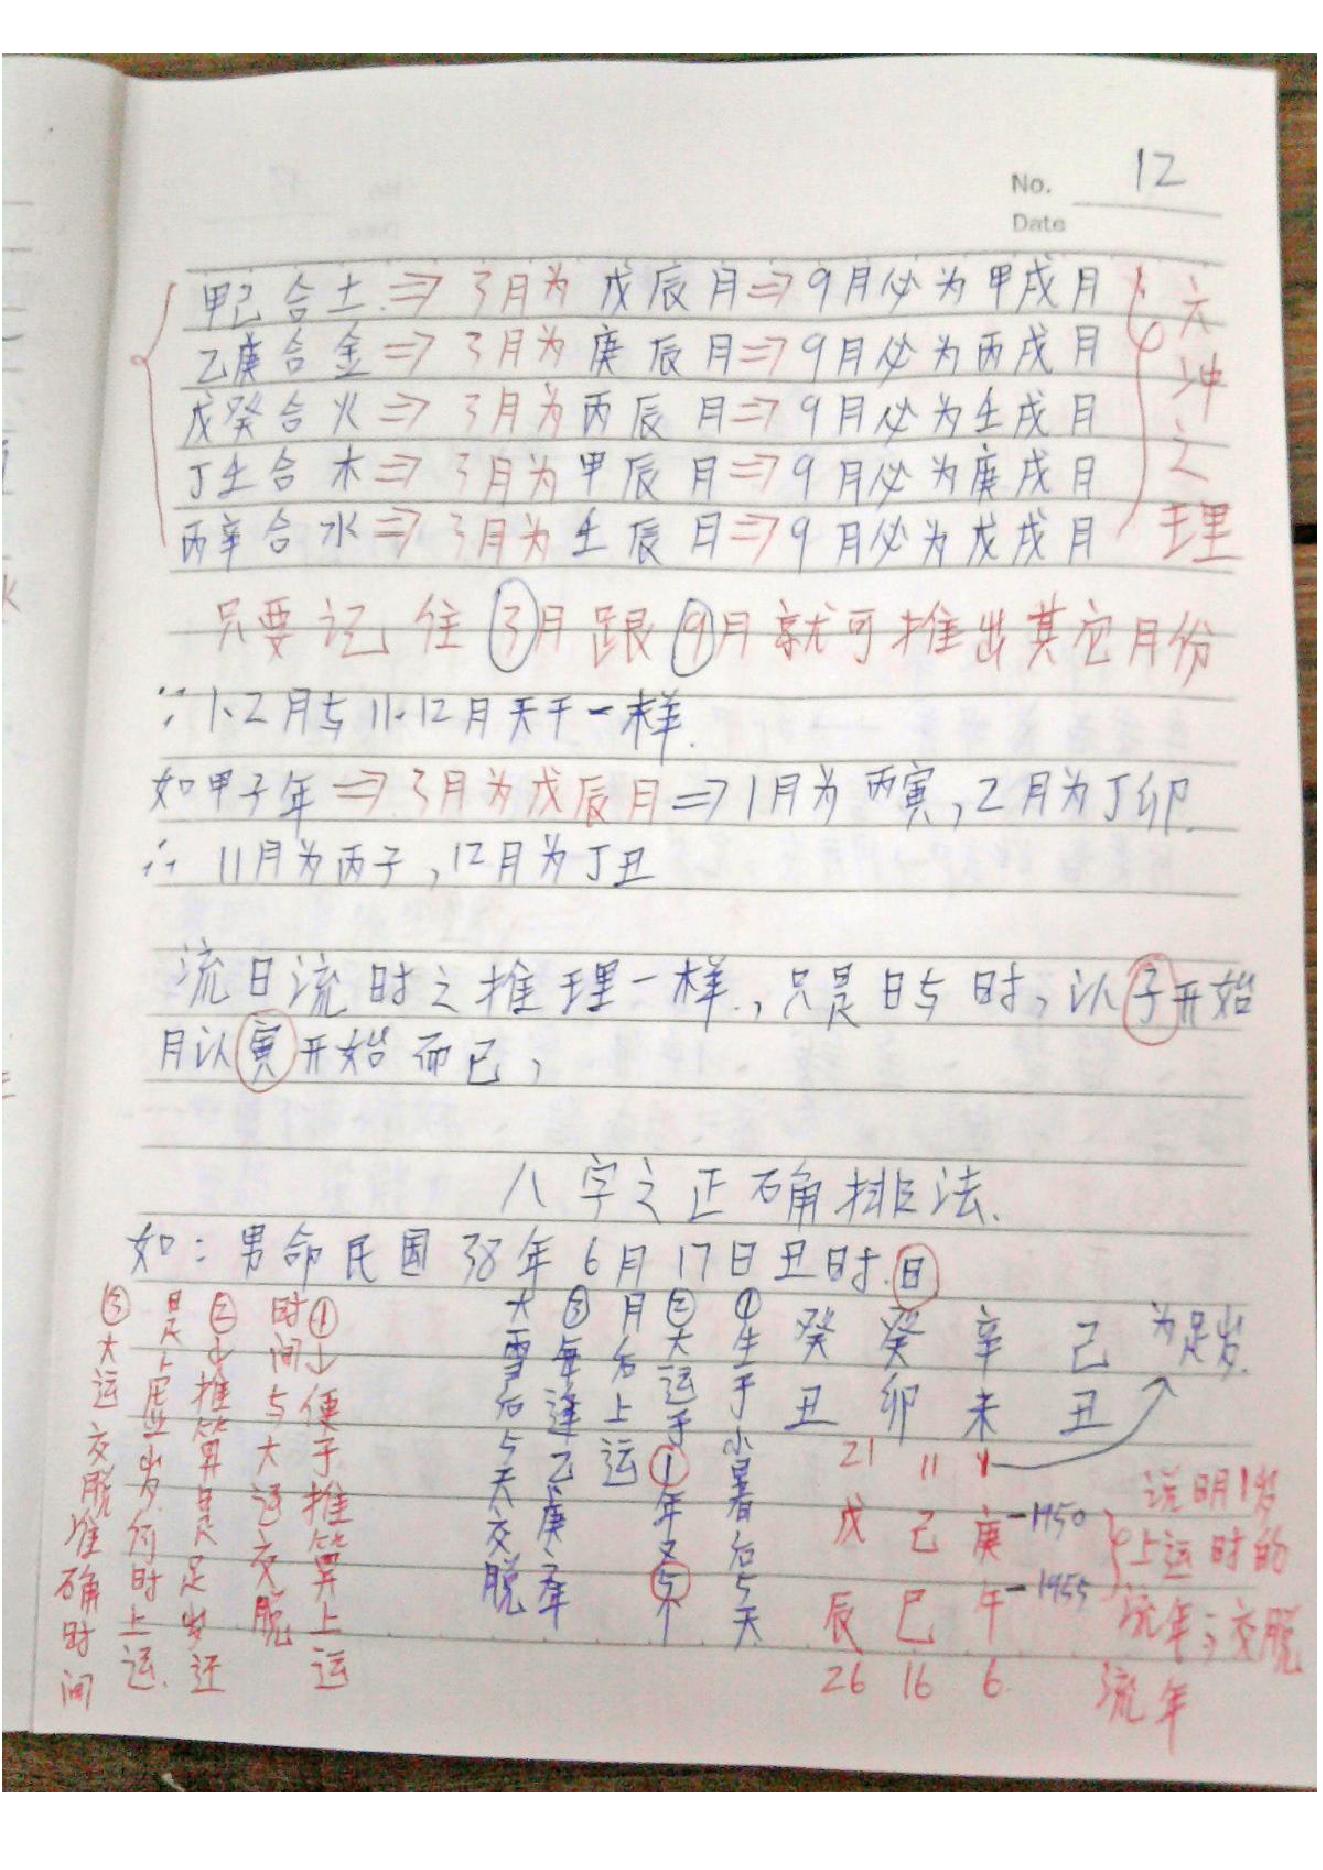 No. 12
Date
甲己合土⇒3月为戊辰月⇒9月必为甲戌月
乙庚合金⇒3月为庚辰月⇒9月必为丙戌月
戊癸合火⇒3月为丙辰月⇒9月必为壬戌月
丁壬合木⇒3月为甲辰月⇒9月必为庚戌月
丙辛合水⇒3月为壬辰月⇒9月必为戊戌月
六冲之理
只要记住③月跟⑨月就可推出其它月份
∵1、2月与11、12月天干一样.
如甲子年⇒3月为戊辰月⇒1月为丙寅,2月为丁卯.
∴11月为丙子,12月为丁丑
流日流时之推理一样,只是日与时,以子开始
月以寅开始而已,
八字之正确排法.
如:男命民国38年6月17日丑时.日
癸 癸 辛 己
丑 卯 未 丑
为足岁.
21 11 1
戊 己 庚 -1950
辰 巳 午 -1955
26 16 6
说明1岁
上运时的
流年;交脱
流年
①生于小暑后5天
②大运于①年又⑤个
月后上运
③每逢乙庚之年
大雪后5天交脱
①↓便于推算上运
时间与大运交脱
②↓推算是足岁还
是虚岁.何时上运.
③大运交脱准确时间